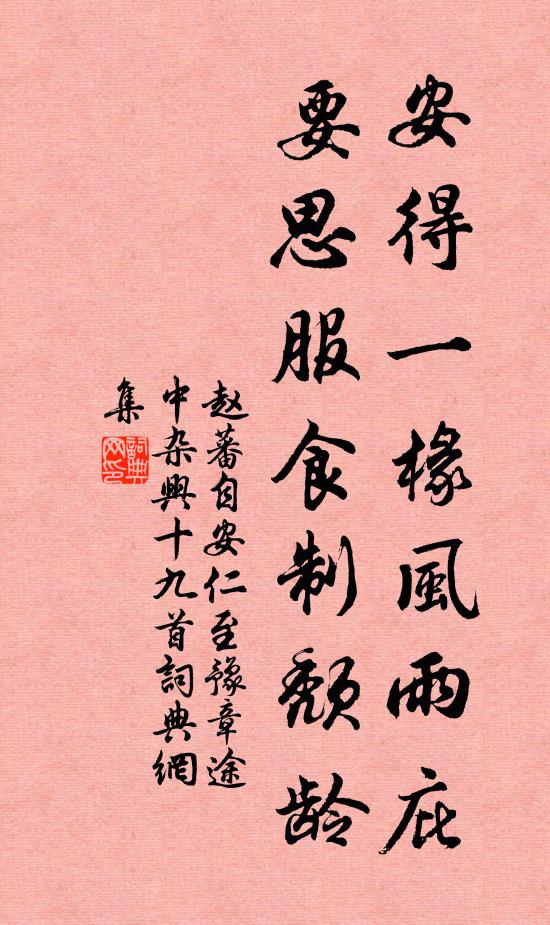 安得一椽風雨庇
要思服食制颓龄
赵蕃自安仁至豫章途
中杂興十九首詞典網
集
詞典
网印